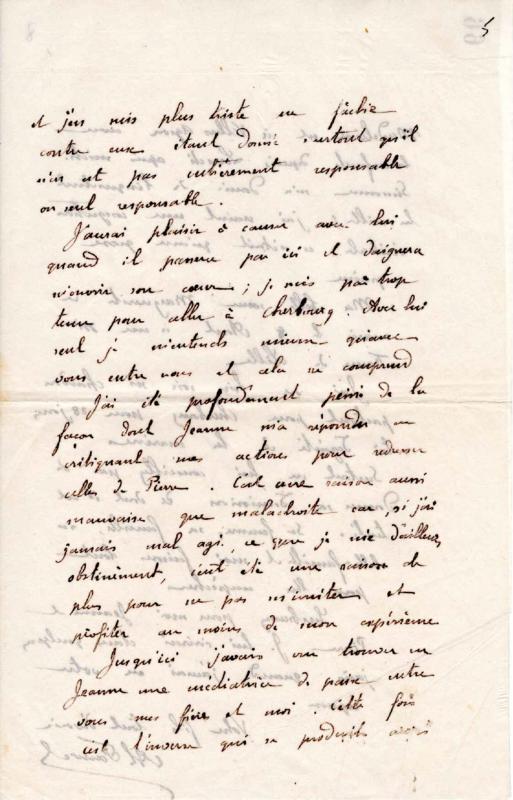 5
et j'en suis plus triste que fâché
contre eux étant donné surtout qu'il
n'en est pas entièrement responsable
ou seul responsable.
J'aurai plaisir à causer avec lui
quand il passera par ici et daignera
m'ouvrir son cœur ; je suis pas trop
tenu pour aller à Cherbourg. Avec lui
seul je m'entends mieux qu'avec
vous entre vous et cela se comprend
J'ai été profondément peiné de la
façon dont Jeanne m'a répondu en
critiquant mes actions pour redresser
celles de Pierre. C'est une raison aussi
mauvaise que maladroite car, si j'ai
jamais mal agi, ce que je nie d'ailleurs
obstinément, c'eut été une raison de
plus pour ne pas m'imiter et
profiter au moins de mon expérience
Jusqu'ici j'avais cru trouver en
Jeanne une médiatrice de paix entre
vous mes fils et moi. Cette fois
c'est l'inverse qui se produit